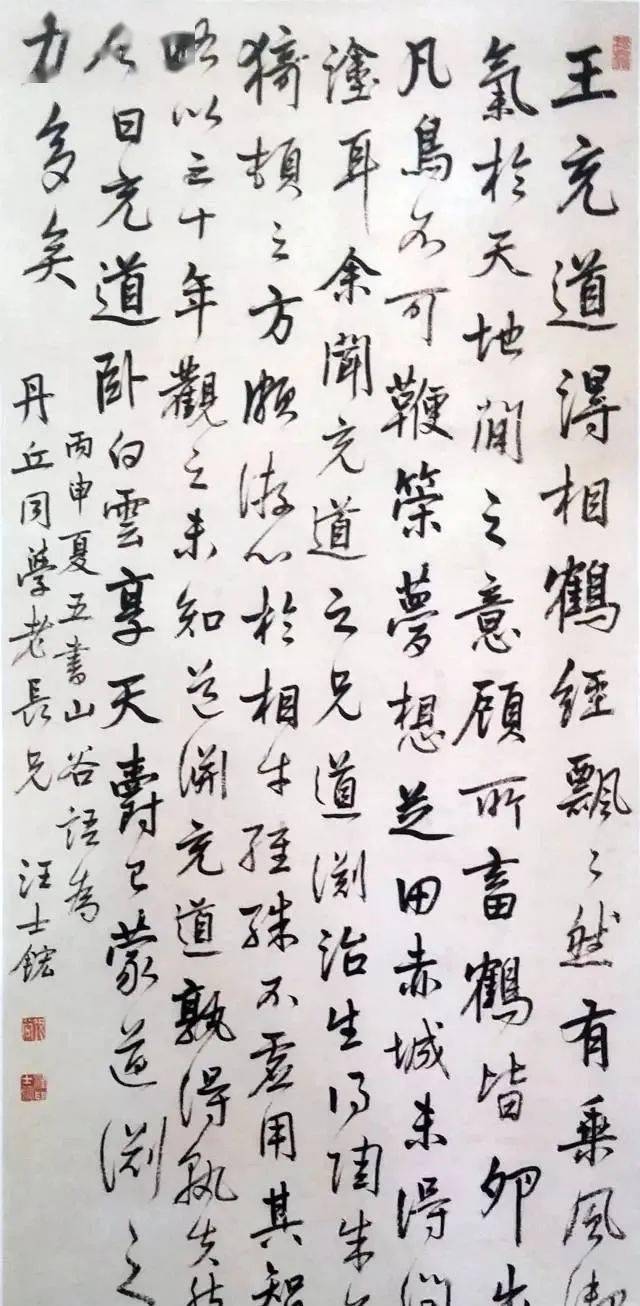 王充道得相鶴經飄〻然有乘風御
氣於天地間之意顧所畜鶴皆卵生
凡鳥不可鞭策夢想芝田赤城未得問
塗耳余聞充道之兄道淵治生得陶朱
猗頓之方頗游心於相牛經殊不虛用其智
略以三十年觀之未知道淵充道孰得孰失
人曰充道臥白雲享天爵已蒙道淵之
力多矣
丙申夏五書山谷語為
丹丘同學老長兄 汪士鋐